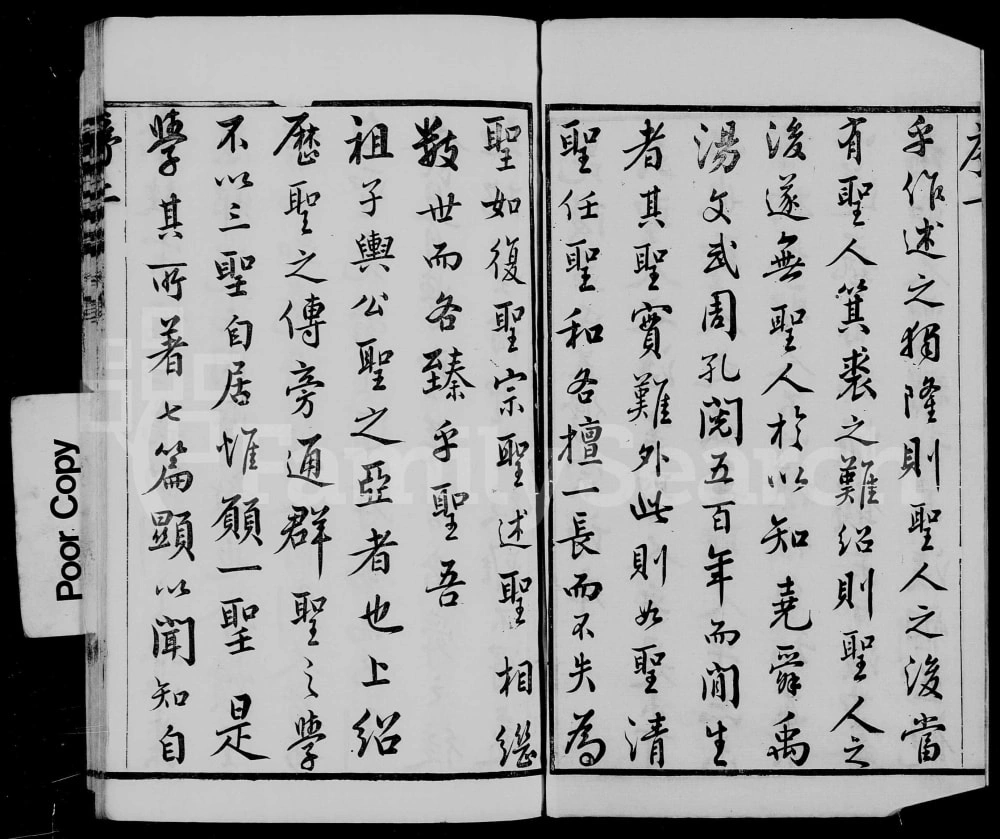 序一
乎作述之獨隆則聖人之後當
有聖人箕裘之難紹則聖人之
後遂無聖人於以知堯舜禹
湯文武周孔閱五百年而間生
者其聖實難外此則如聖清
聖任聖和各擅一長而不失為
聖如復聖宗聖述聖相繼
數世而各臻乎聖吾
祖子輿公聖之亞者也上紹
歷聖之傳旁通群聖之學
不以三聖自居惟願一聖是
學其所著七篇顯以聞知自
Poor Copy
FamilySearch